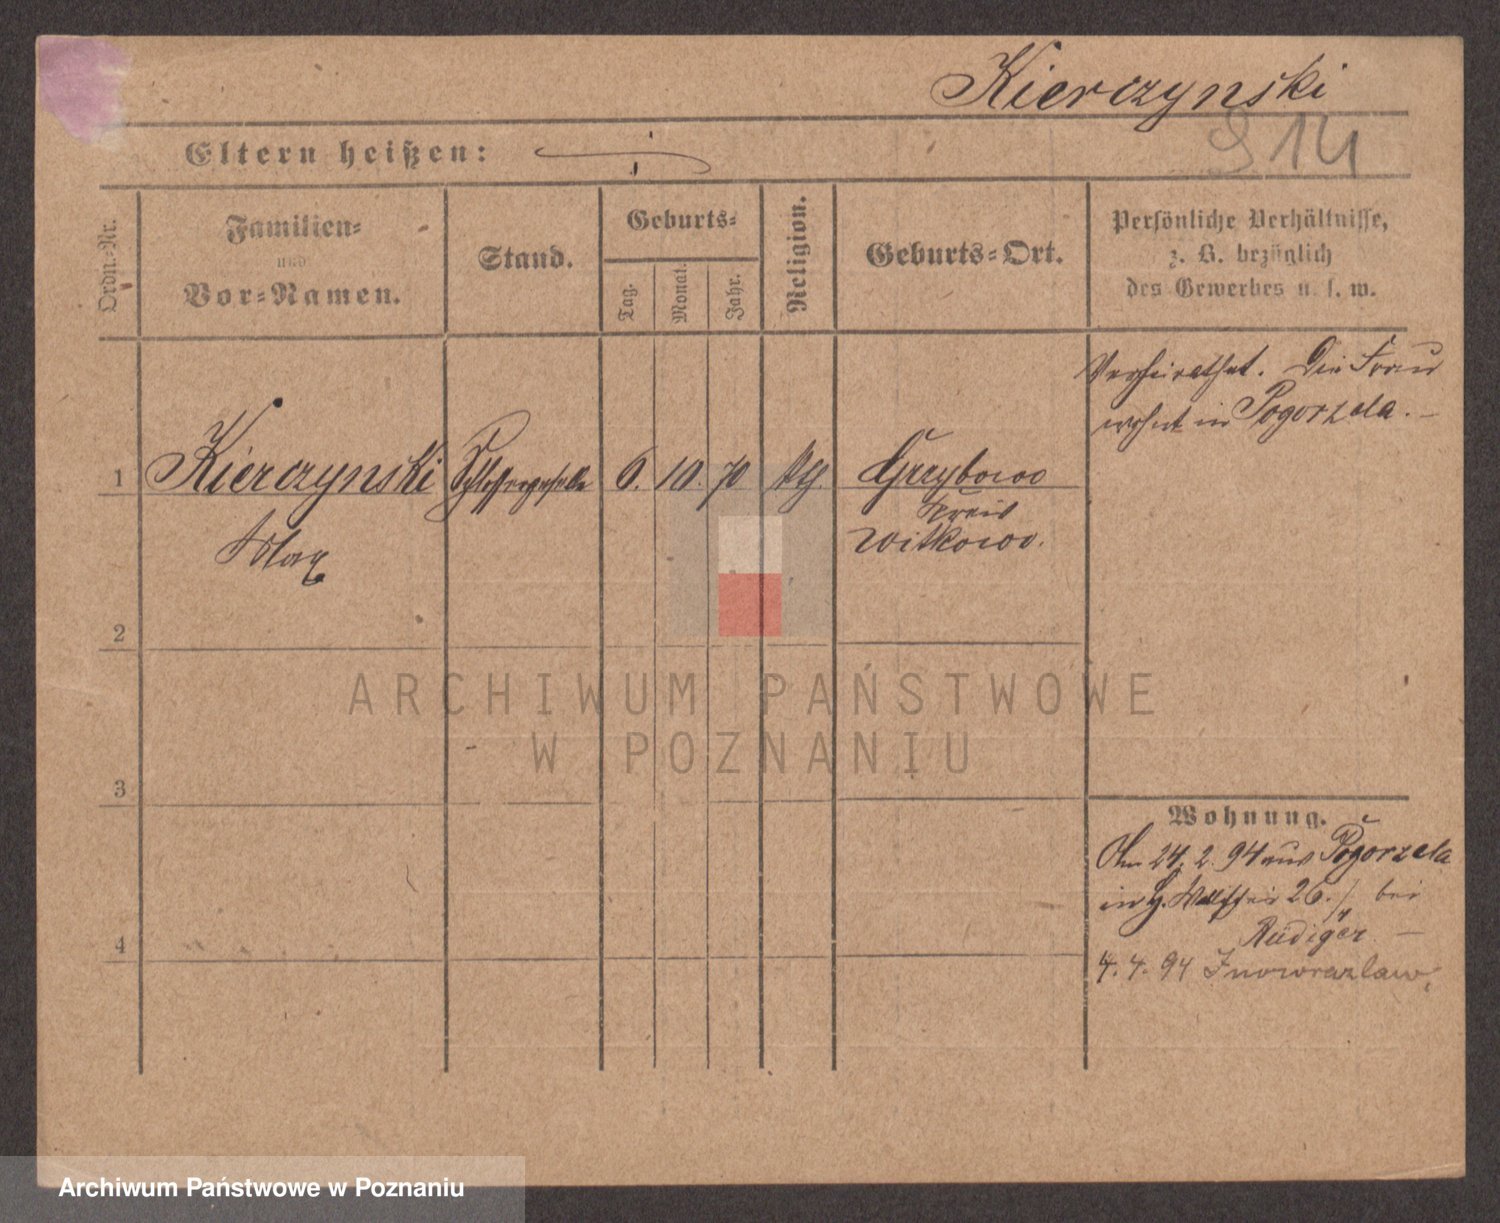 Kierczynski
S 14
Eltern heißen:
Ordn.-Nr.
Familien-
und
Vor-Namen.
Stand.
Geburts-
Tag.
Monat.
Jahr.
Religion.
Geburts-Ort.
Persönliche Verhältnisse,
z. B. bezüglich
des Gewerbes u. s. w.
Verheirathet. Die Frau
wohnt in Pogorzela. —
1 Kierczynski Schlossergeselle 6. 10. 70 kth. Grzybowo
Kreis
Max Witkowo.
2
3
4
Wohnung.
Am 24. 2. 94 aus Pogorzela
in 26. / bei
Rüdiger. —
4. 4. 94 Inowrazlaw.
ARCHIWUM PAŃSTWOWE
W POZNANIU
Archiwum Państwowe w Poznaniu